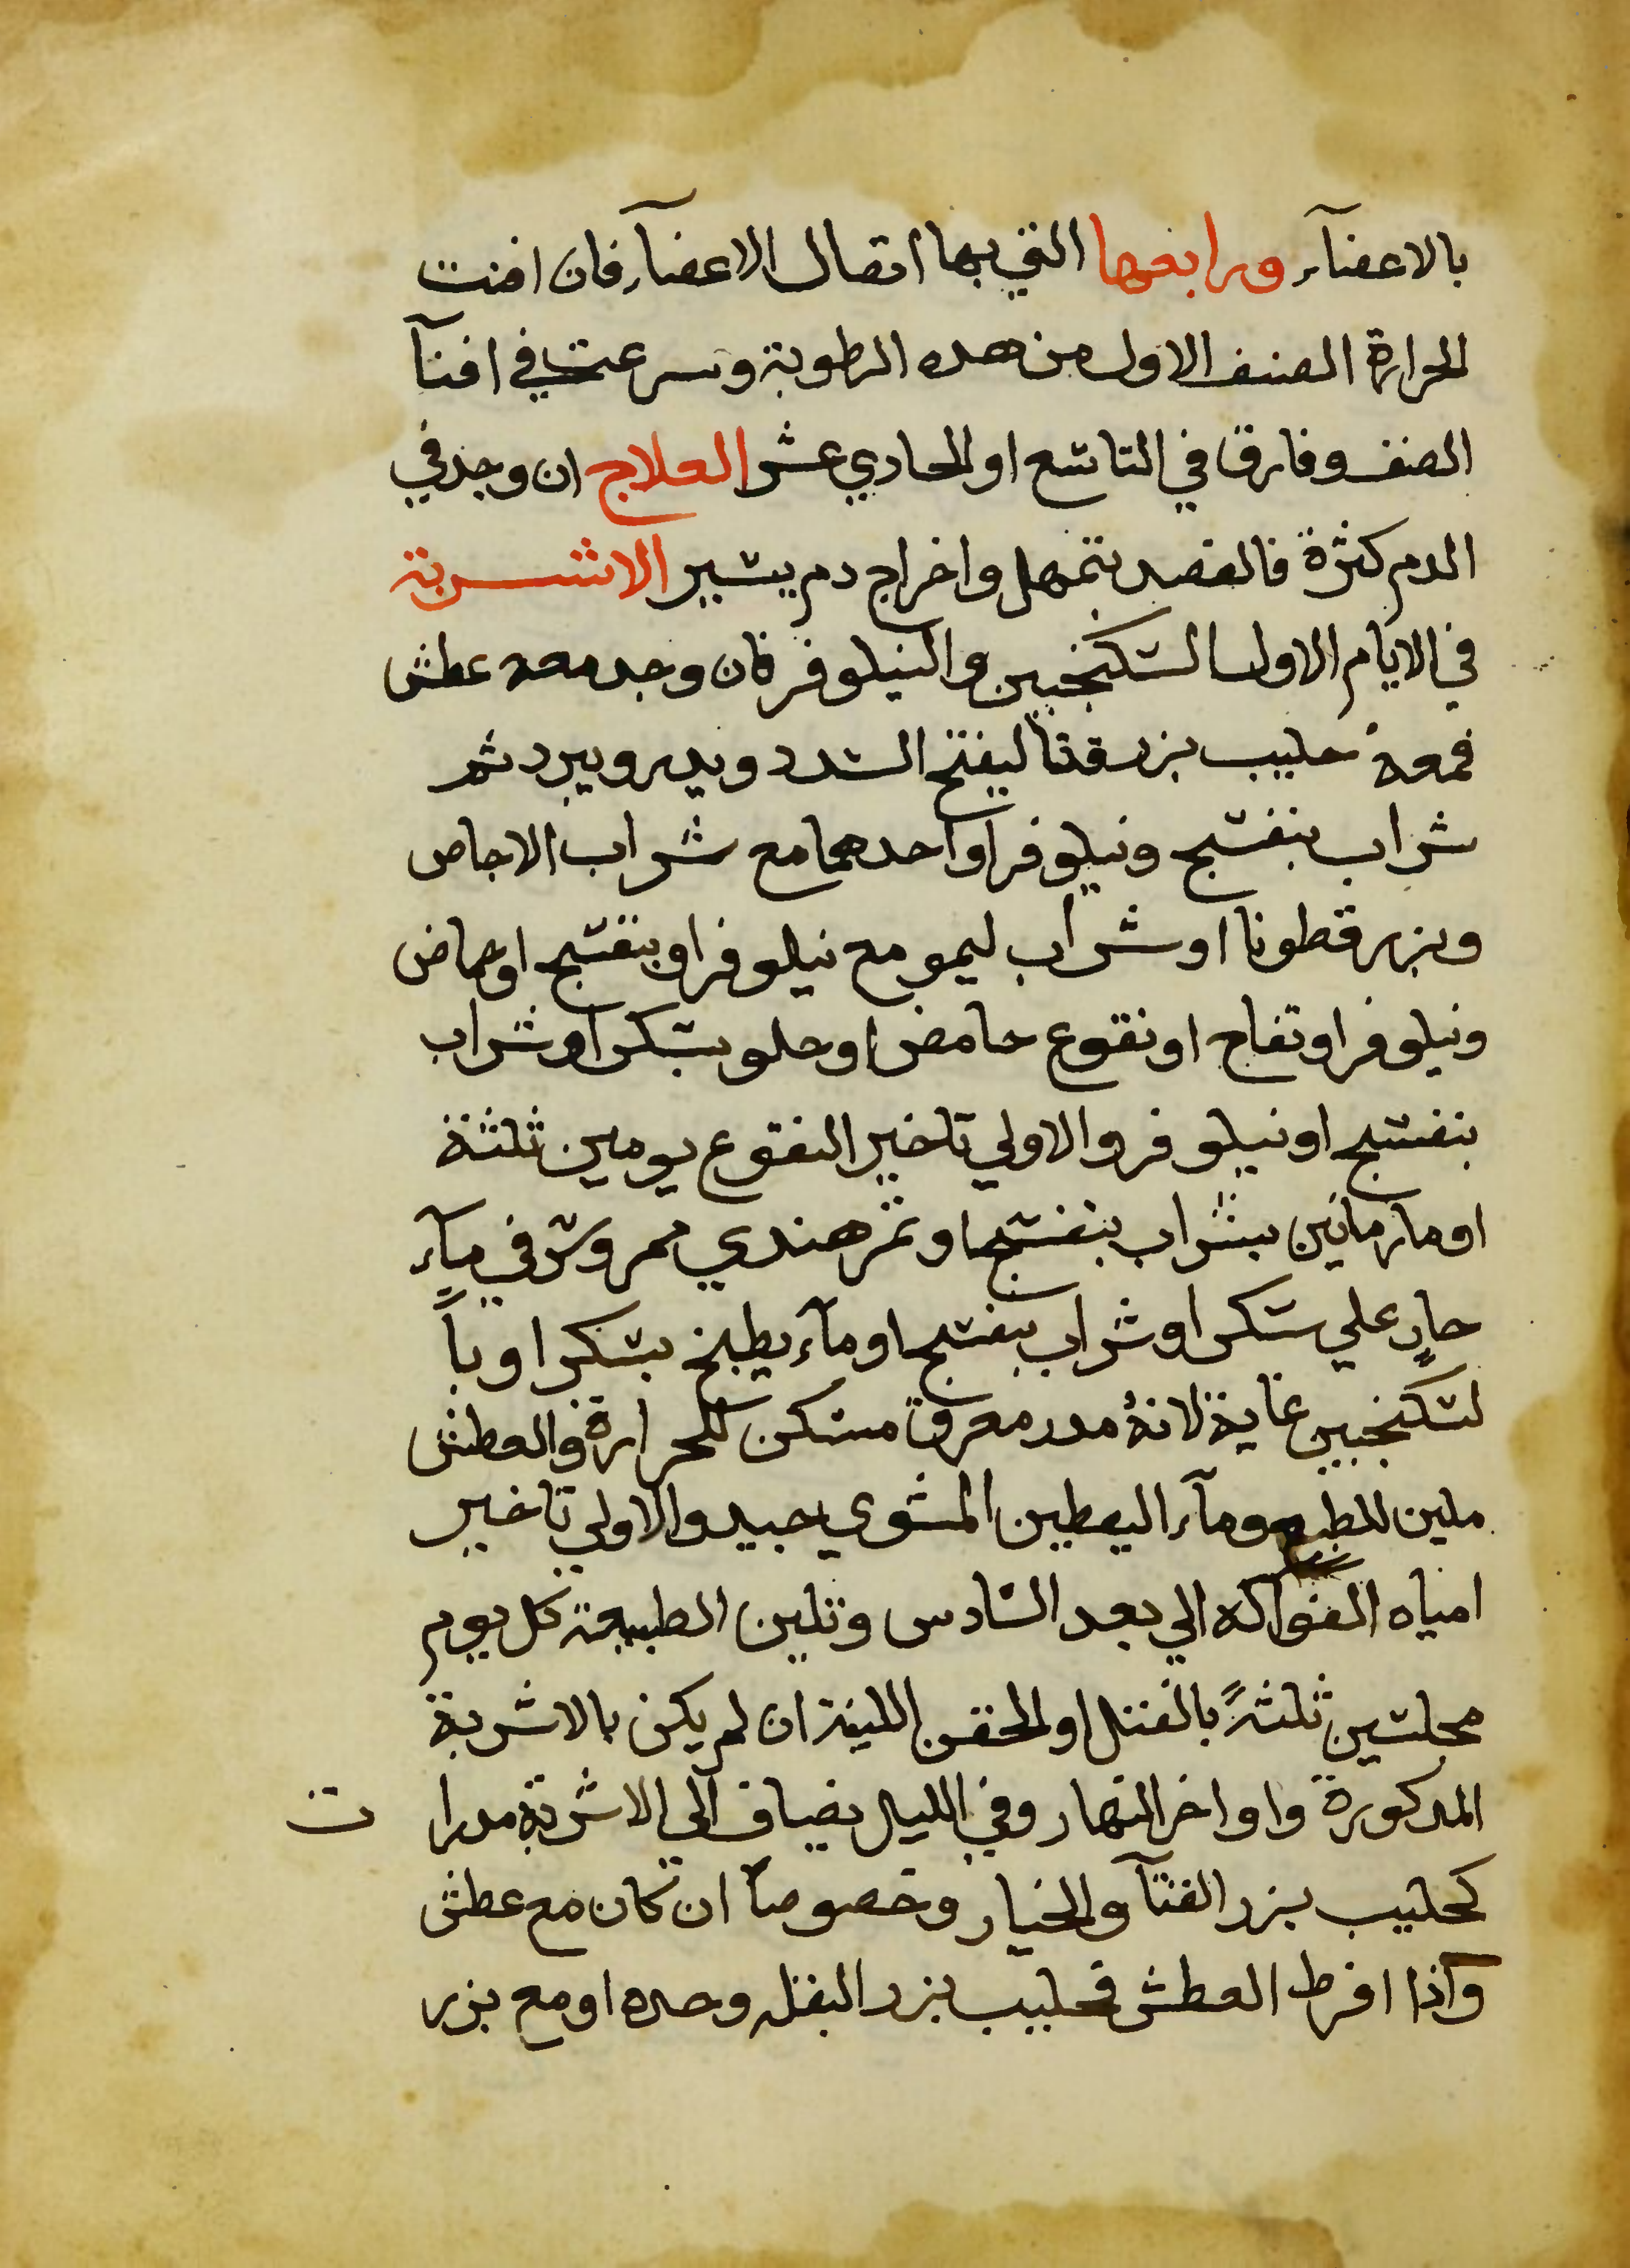 بالاعضآء ورابعها التي بها اتصال الاعضآء فان افنت
الحرارة الصنف الاول من هده الرطوبة وسرعت في افنآ
الصنف وفارق في التاسع او الحادي عشر العلاج ان وجد في
الدم كثرة فالفصد بتمهل واخراج دم يسير الاشربة
في الايام الاول السكنجبين والنيلوفر فان وجد معه عطش
فمعهُ حليب بزر قثا ليفتح السدد ويدر ويبرد ثم
شراب بنفسج ونيلوفر او احدهما مع شراب الاجاص
وبزر قطونا او شراب ليمو مع نيلوفر او بنفسج او حماض
ونيلوفر او تفاح او نقوع حامض او حلو بسكر او شراب
بنفسج او نيلوفر والاولي تاخير النقوع يومين ثلثة
او مار مانين بشراب بنفسج او تمر هندي ممروس في مآء
حارٍ علي سكر او شراب بنفسج او مآء بطيخ بسكر او باً
لسكنجبين غاية لانهُ مدر معرق مسكن للحرارة والعطش
ملين للطبع ومآء اليقطين المشوي جيد والاولي تاخير
امياه الفواكه الي بعد السادس وتلين الطبيعة كل يوم
مجلسين ثلثةً بالفتل او الحقن اللينة ان لم يكن بالاشربة
المدكورة واواخر النهار وفي الليل يضاف الي الاشربة مدرا ت
كحليب بزر القثآ والخيار وخصوصاً ان كان مع عطش
واذا افرط العطش فحليب بزر البقله وحده او مع بزر